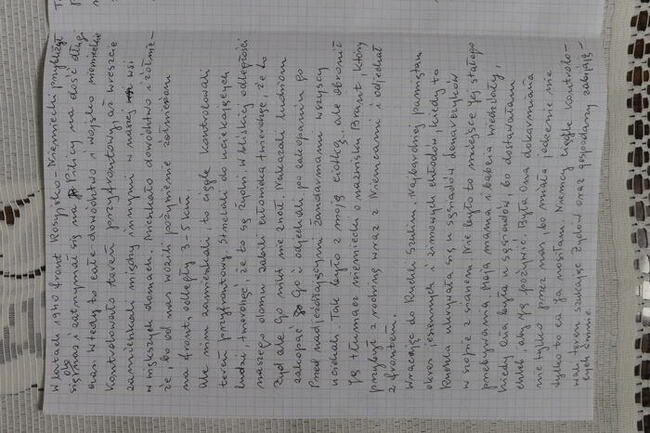 W latach 1940 front Rosyjsko Niemiecki przybliżył
się nas i zatrzymał się na Pilicy na dość długi
oraz wtedy to całe dowództwo i wojsko niemieckie
kontrolowało teren przyfrontowy, aż wreszcie
zamieszkali między innymi w naszej wsi
w większych domach. Mieszkało dowództwo i żołnie-
rze, bo od nas wozili pożywienie żołnierzom
na front, odległy 3-5 km.
Ale nim zamieszkali, to ciągle kontrolowali
teren przyfrontowy. Strzelali do uciekających
ludzi, twierdząc że to są Żydzi. W bliskiej odległości
naszego domu zabili człowieka twierdząc, że to
Żyd ale go nikt nie znał. Nakazali ludziom
zakopać go i odjechali, po zakopaniu go
Przed nadjeżdżającymi żandarmami wszyscy
uciekali. Tak było z moją ciotką, ale obronił
ją tłumacz niemiecki o nazwisku Brandt który
przybył z rodziną wraz z Niemcami i odjechał
z frontem.
Wracając do Ruchli Szulim, najbardziej pamiętam
okres jesiennych i zimowych chłodów, kiedy to
Ruchla ukrywała się u sąsiadów
w szopie z sianem. Nie było to miejsce jej stałego
przebywania. Moja mama i babcia wiedziały,
kiedy ona była u sąsiadów bo dostawałam
chleb aby ją pożywić. Była ona dokarmiana
nie tylko przez nas, bo miała jedzenie nie
tylko to co ja niosłam. Niemcy ciągle kontrolo-
wali teren szukając Żydów oraz gospodarzy